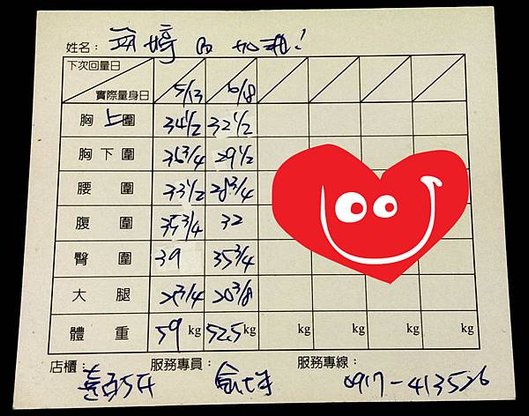 姓名： 婷 加油！
下次回量日
實際量身日 5/13 10/18
胸上圍 34 1/2 32 1/2
胸下圍 29 1/2
腰圍 33 1/2 28 3/4
腹圍 35 3/4 32
臀圍 39 35 3/4
大腿 20 3/8
體重 59 kg 52.5 kg kg kg kg kg
店櫃： 服務專員： 服務專線：
0917-413526